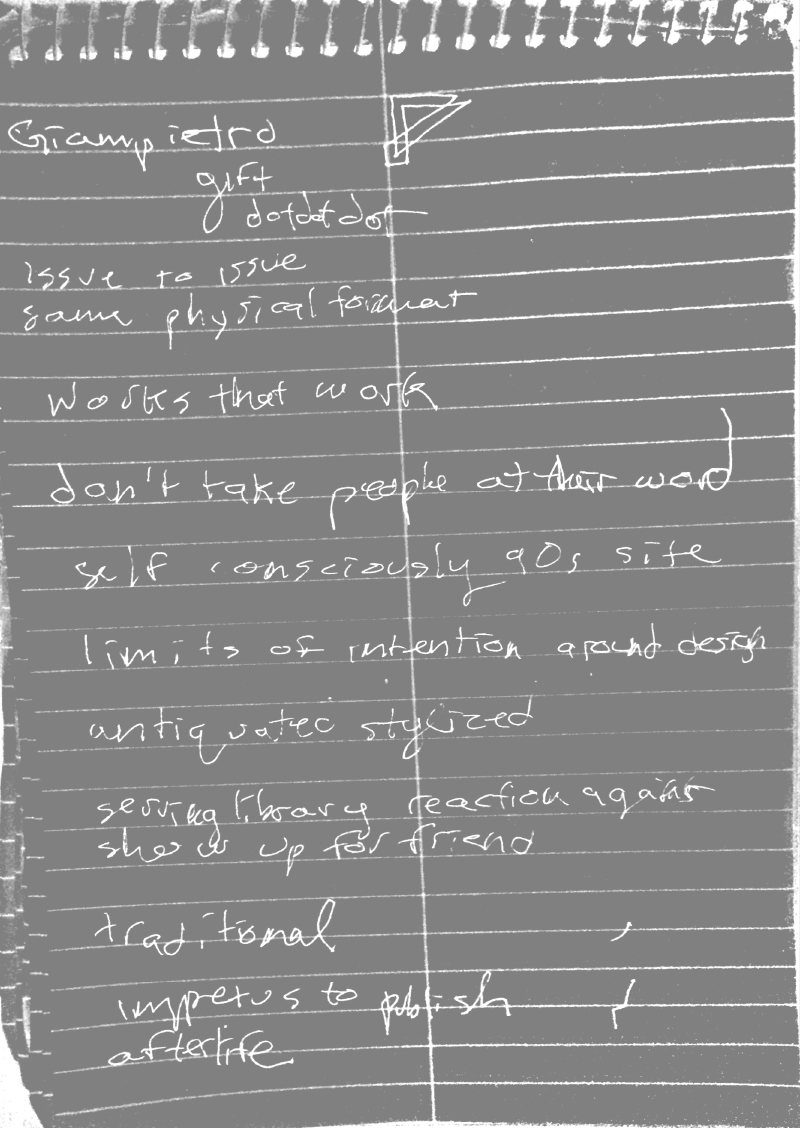 Giampietro
gift
dotdotdot
issue to issue
same physical format
works that work
don't take people at their word
self consciously 90s site
limits of intention around design
antiquated stylized
serving library reaction against
show up for friend
traditional
impetus to publish
afterlife